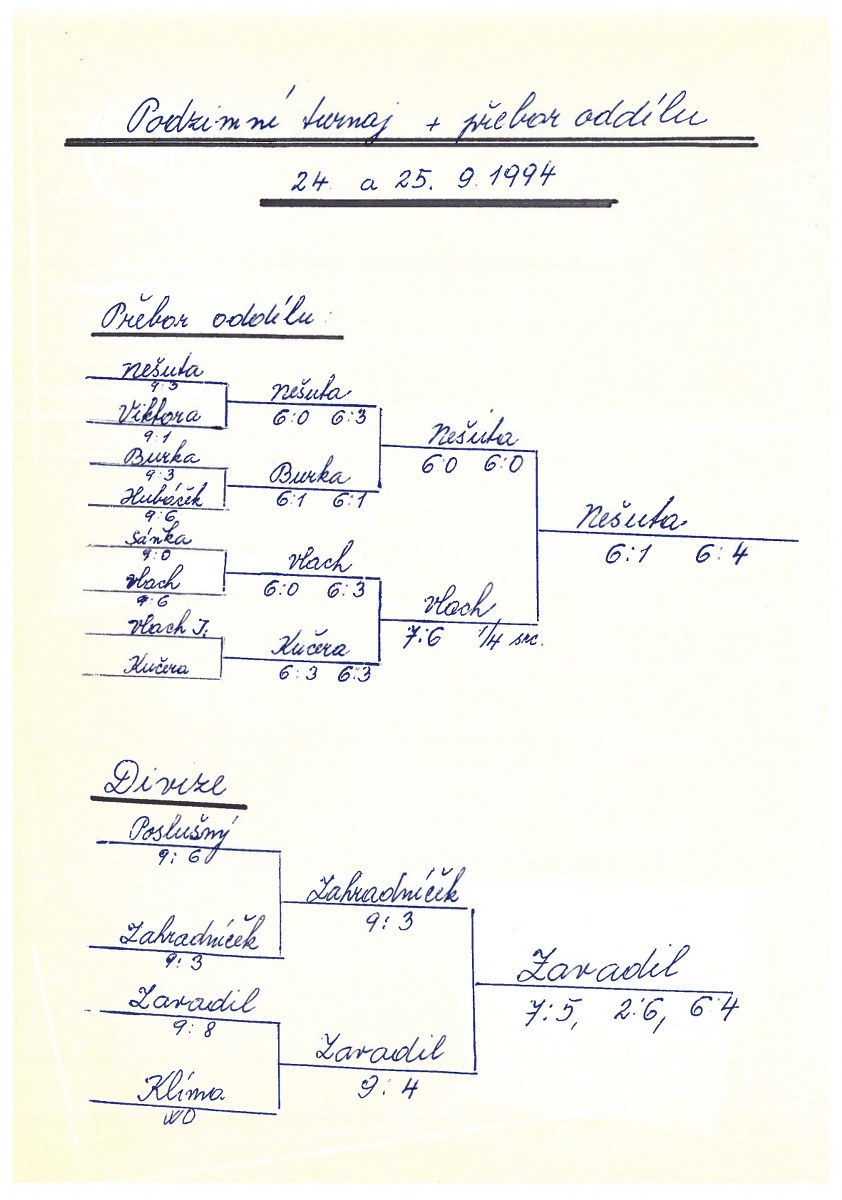 Podzimní turnaj + přebor oddílu
24. a 25. 9. 1994
Přebor oddílu:
Nešuta
9:3
Viktora
9:1
Burka
9:3
Hubáček
9:6
Sáňka
9:0
Vlach
9:6
Vlach J.
Kučera
Nešuta
6:0 6:3
Burka
6:1 6:1
Vlach
6:0 6:3
Kučera
6:3 6:3
Nešuta
6:0 6:0
Vlach
7:6 1/4 scr.
Nešuta
6:1 6:4
Divize
Poslušný
9:6
Zahradníček
9:3
Zavadil
9:8
Klíma
WO
Zahradníček
9:3
Zavadil
9:4
Zavadil
7:5, 2:6, 6:4